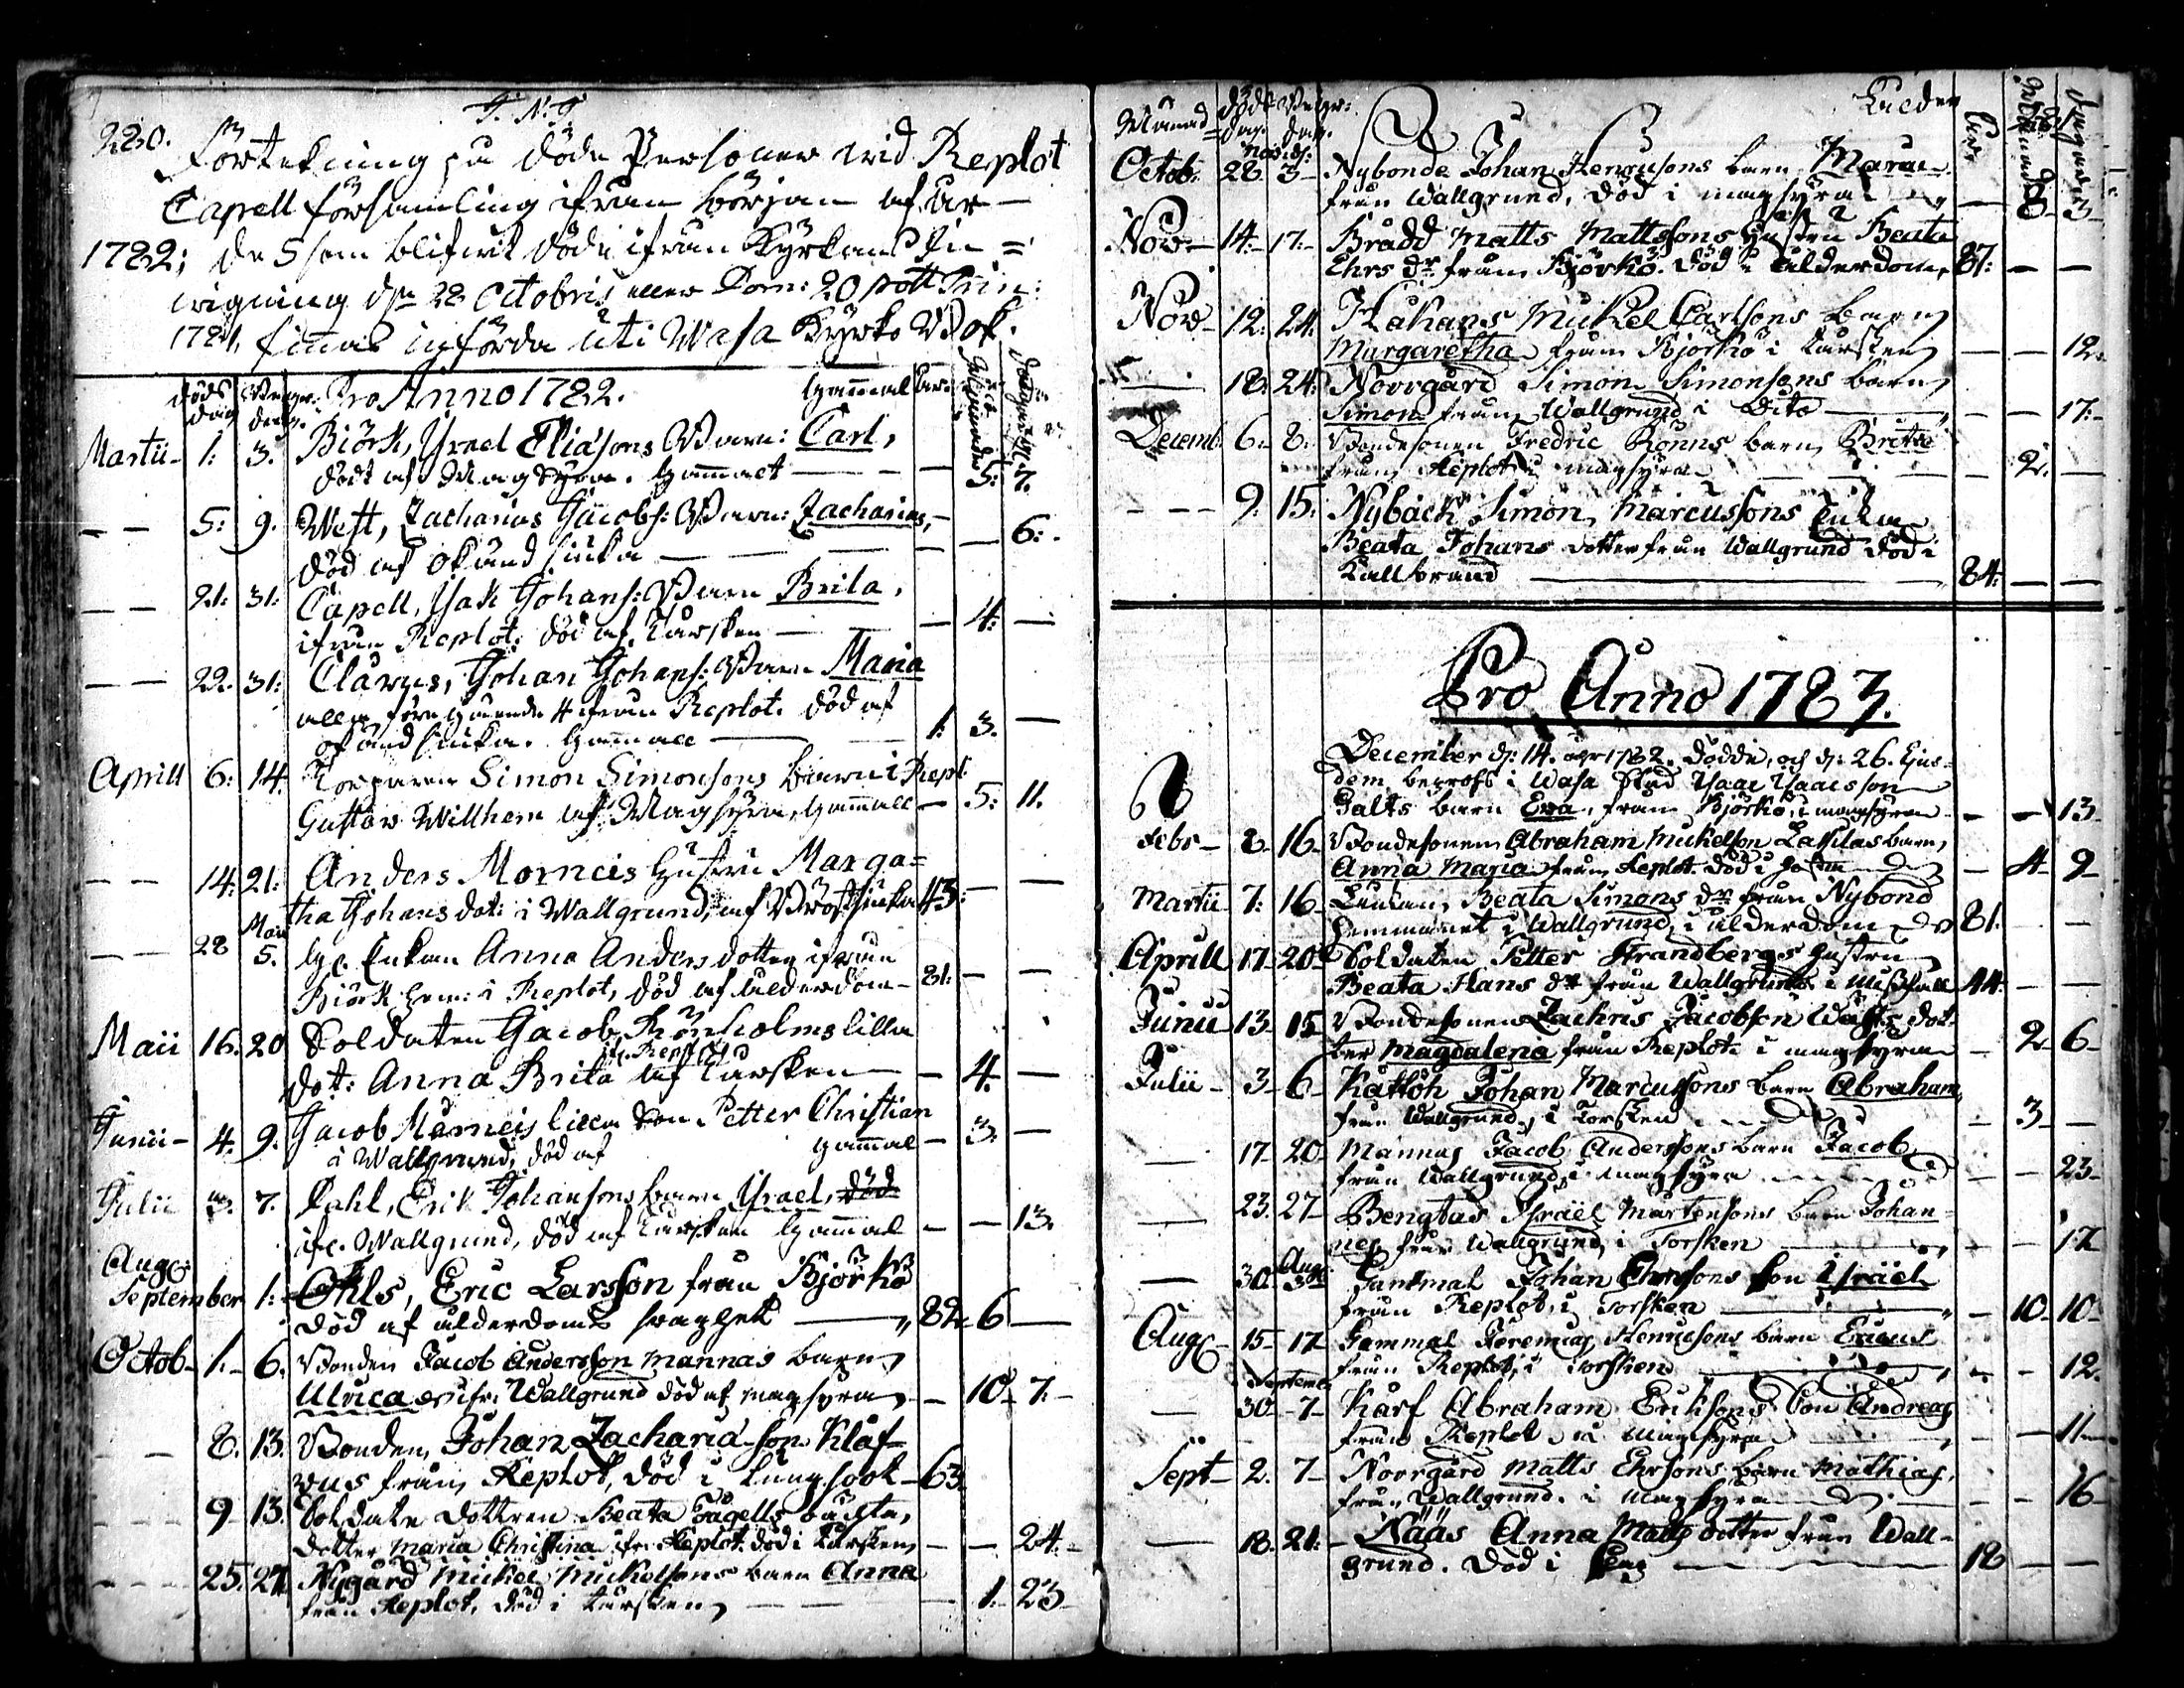 J. N. J.
220.
Förtekning på döde Personer wid Replot
Capell församling ifrån början af år
1782; de som blifwit döde ifrån Kyrkans In=
wigning d. 28 Octobris eller Dom: 20 post Trin:
1781, finnas införda uti Wasa Kyrko Bok.
döds dag Begr: dag. Pro Anno 1782. Gammal år månader dagar
Martii 1: 3. Biörk, Israel Eliasons Barn: Carl,
dödt af Magsyra. Gammalt 5: 7.
5: 9. West, Zacharias Jacobs: Barn: Zacharias,
död af okänd siuka 6:
21: 31: Capell, Isak Johans: Barn Brita,
ifrån Replot. död af Torsken 4:
22. 31: Clawus, Johan Johans: Barn Maria
alla föregående 4 ifrån Replot. död af
okänd siuka. Gammall 1: 3.
Aprill 6: 14. Torparen Simon Simonsons barn i Repl:
Gustav Willhem af Magsyra, Gammall 5: 11.
14: 21: Anders Morneis Hustru Marga=
tha Johans dot: i Wallgrund, af Bröstsiuka 43:
28 Maii 5. Enkan Anna Anders dotter ifrån
Biörk hem: i Replot, död af ålderdom 81:
Maii 16. 20 Soldaten Jacob Rönholms lilla
ifr. Replot
dot: Anna Brita af Torsken 4.
Junii 4. 9. Jacob Morneis lilla Son Petter Christian
i Wallgrund, död af Gammal 3.
Julii 3. 7. Dahl, Erik Johansons barn Israel, död
ifr. Wallgrund, död af Torsken Gammal 13.
Aug:
September 1: Ohls, Eric Larsson från Björkö
död af ålderdoms svaghet 82 6
Octob 1. 6. Bonden Jacob Andersson Mannas barn
Ulrica ifr. Wallgrund död af magsyra 10 7.
8. 13. Bonden Johan Zacharia son Klaf
wus från Replot, död i lungsoot 63
9 13. Soldate dottren Beata Fagells oächta
dotter Maria Christina ifr. Replot. död i Torsken 24.
25. 27. Nygård Mickel Mickelsons barn Anna
från Replot, död i Torsken 1. 23
Månad döds dag. Begr: dag. Ålder år månader dagar
Octob. 28 Novbr: 3 Nybonde Johan Henricsons barn Maria
från Wallgrund, död i magsyra 8 3
Nov 14. 17. Brådd Matts Mattssons Hustru Beata
Ehrs dr från Björkö. död i ålderdom 87:
Nov 12. 24. Håkans Mickel Carlsons barn
Margaretha från Björkö i Torsken 12.
18. 24. Norrgård Simon Simonsons barn
Simon från Wallgrund i Dito 17.
Decemb 6. 8. Bondesonen Fredric Rönns barn Brita
från Replot i magsyra 2.
9. 15. Nybäck Simon Marcussons Enka
Beata Johans dotter från Wallgrund död i
Kallbrand 84.
Pro Anno 1783.
December d: 14. år 1782. dödde, och d: 26. Ejus=
dem begrofs i Wasa Stad Isaac Isaacsson
Galts barn Eva, från Björkö, i magsyra 13
Febr 8 16 Bondesonen Abraham Mickelson Lassilas barn
Anna Maria från Replot. död i 4 9
Martii 7. 16 Enkan Beata Simons dr från Nybond
hemmanet i Wallgrund, i ålderdom 81.
Aprill 17 20 Soldaten Petter Strandbergs Hustru
Beata Hans dr från Wallgrund i missfall 44.
Junii 13. 15 Bondesonen Zachris Jacobson Wästs dot=
ter Magdalena från Replot i magsyra 2 6
Julii 3 6 Kattöh Johan Marcussons barn Abraham
från Wallgrund i Torsken 3
17 20 Mannas Jacob Anderssons barn Jacob
från Wallgrund i magsyra 23
23. 27 Bengtas Israël Mårtensons barn Johan
nes från Wallgrund, i Torsken 17
30. Aug: 3 Gammal Johan Ehrssons son Israel
från Replot, i Torsken 10 10
Aug 15 17 Gammal Jeremias Henricsons barn
från Replot, i Torsken 12.
30 Septemb. 7 Karf Abraham Eriksons Son Andreas
från Replot i magsyra 11
Sept 2. 7 Norrgård Matts Ehrsons barn Mathias
från Wallgrund. i magsyra 16
18. 21. Nääs Anna Matts dotter från Wall=
grund. Död i 18